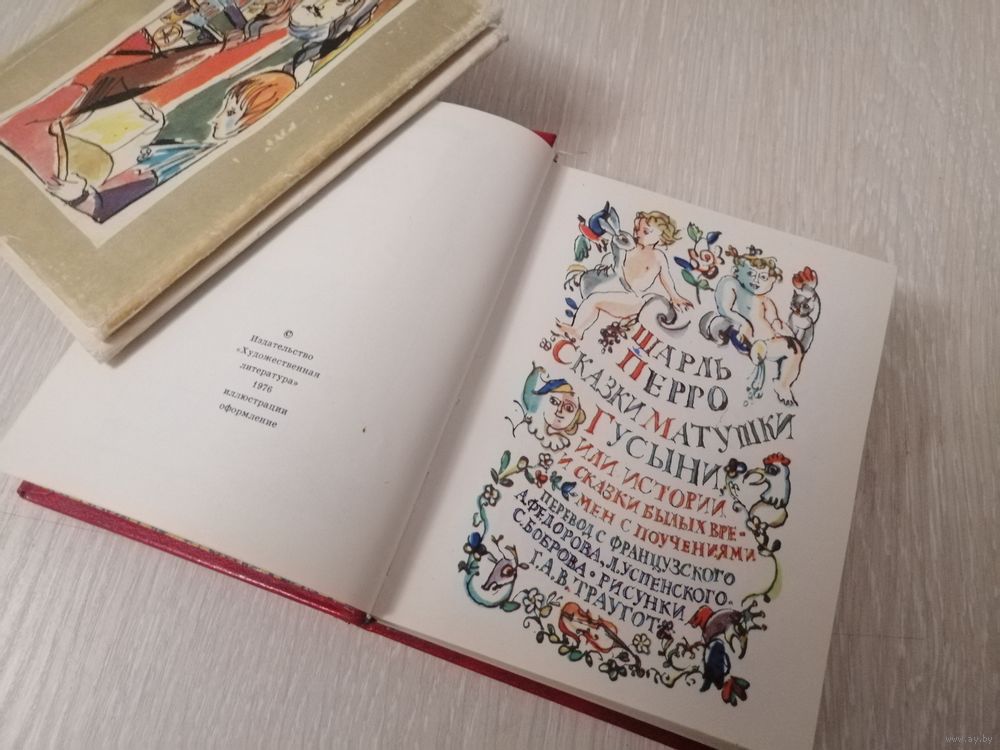 ©
Издательство
«Художественная
литература»
1976
иллюстрации
оформление
ШАРЛЬ
ПЕРРО
СКАЗКИ МАТУШКИ
ГУСЫНИ,
ИЛИ ИСТОРИИ
И СКАЗКИ БЫЛЫХ ВРЕ-
МЕН С ПОУЧЕНИЯМИ
ПЕРЕВОД С ФРАНЦУЗСКОГО
А.ФЕДОРОВА, Л.УСПЕНСКОГО,
С.БОБРОВА · РИСУНКИ
Г.А.В.ТРАУГОТ
www.ay.by